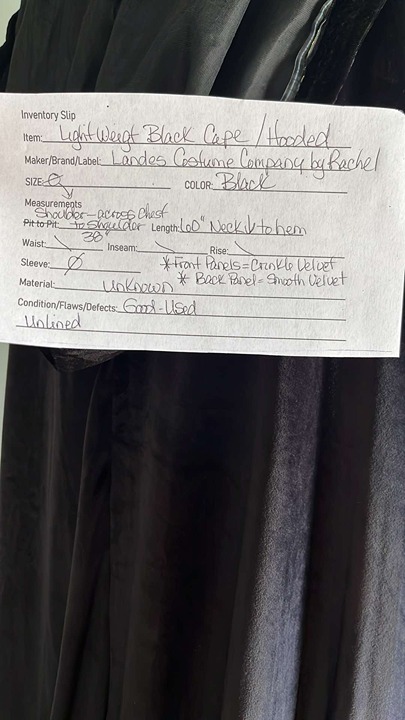 Inventory Slip
Item: Lightweigt Black Cape / Hooded
Maker/Brand/Label: Landes Costume Company by Rachel
SIZE: Ø COLOR: Black
Measurements
Shoulder-across chest
Pit to Pit: to Shoulder Length: 60" Neck to hem
38"
Waist: \ Inseam: \ Rise: \
Sleeve: Ø * Front Panels = Crinkle Velvet
Material: unknown * Back Panel = Smooth Velvet
Condition/Flaws/Defects: Good-Used
Unlined